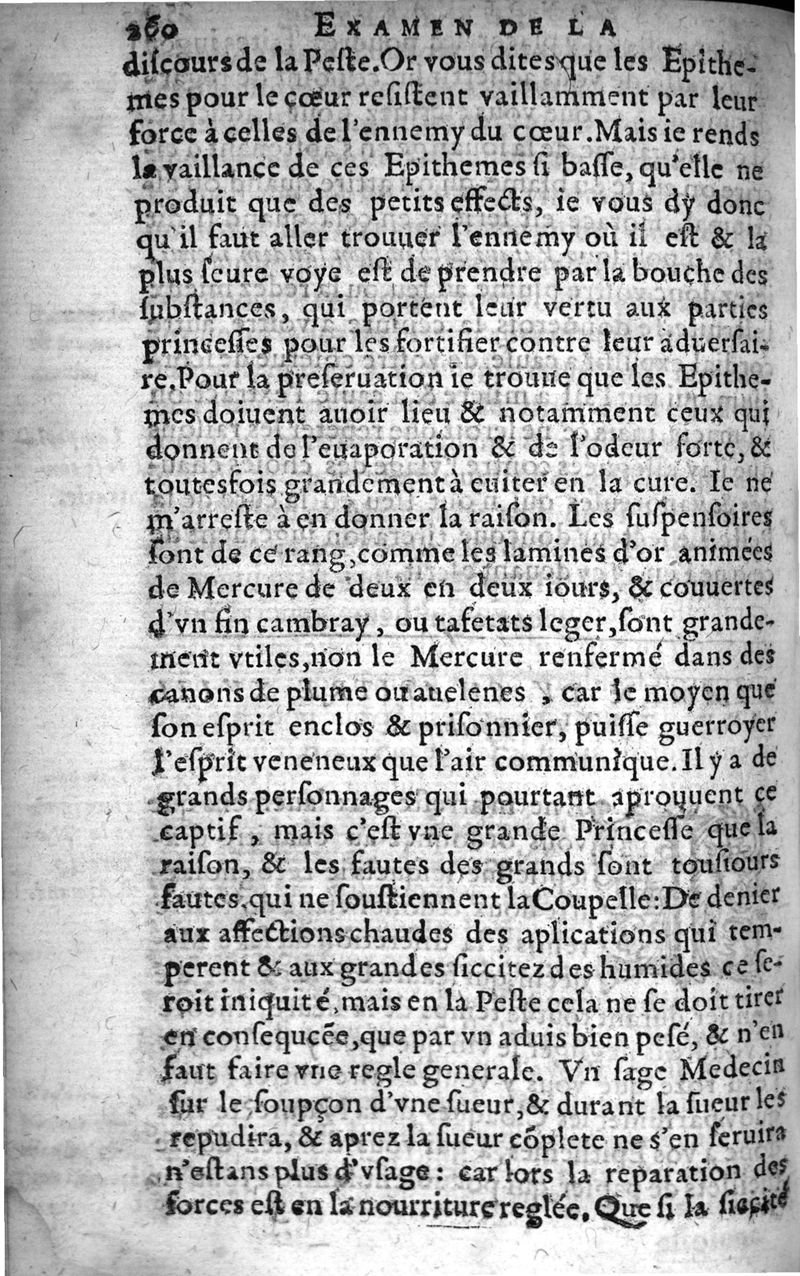 260 EXAMEN DE LA
diſcours de la Peſte. Or vous dites que les Epithe-
mes pour le cœur reſiſtent vaillamment par leur
force à celles de l'ennemy du cœur. Mais ie rends
la vaillance de ces Epithemes ſi baſſe, qu'elle ne
produit que des petits effects, ie vous dy donc
qu'il faut aller trouuer l'ennemy où il eſt & la
plus ſeure voye eſt de prendre par la bouche des
ſubſtances, qui portent leur vertu aux parties
princeſſes pour les fortifier contre leur aduerſai-
re. Pour la preſeruation ie trouue que les Epithe-
mes doiuent auoir lieu & notamment ceux qui
donnent de l'euaporation & de l'odeur forte, &
toutesfois grandement à euiter en la cure. Ie ne
m'arreſte à en donner la raiſon. Les ſuſpenſoires
ſont de ce rang, comme les lamines d'or animées
de Mercure de deux en deux iours, & couuertes
d'vn fin cambray, ou tafetats leger, ſont grande-
ment vtiles, non le Mercure renfermé dans des
canons de plume ou auelenes, car le moyen que
ſon eſprit enclos & priſonnier, puiſſe guerroyer
l'eſprit veneneux que l'air communique. Il y a de
grands perſonnages qui pourtant aprouuent ce
captif, mais c'eſt vne grande Princeſſe que la
raiſon, & les fautes des grands ſont touſiours
fautes, qui ne ſouſtiennent la Coupelle: De denier
aux affections chaudes des aplications qui tem-
perent & aux grandes ſiccitez des humides ce ſe-
roit iniquité, mais en la Peſte cela ne ſe doit tirer
en conſequcẽe, que par vn aduis bien peſé, & n'en
faut faire vne regle generale. Vn ſage Medecin
ſur le ſoupçon d'vne ſueur, & durant la ſueur les
repudira, & aprez la ſueur cõplete ne s'en ſeruira
n'eſtans plus d'vſage: car lors la reparation des
forces eſt en la nourriture reglée. Que ſi la ſiccité